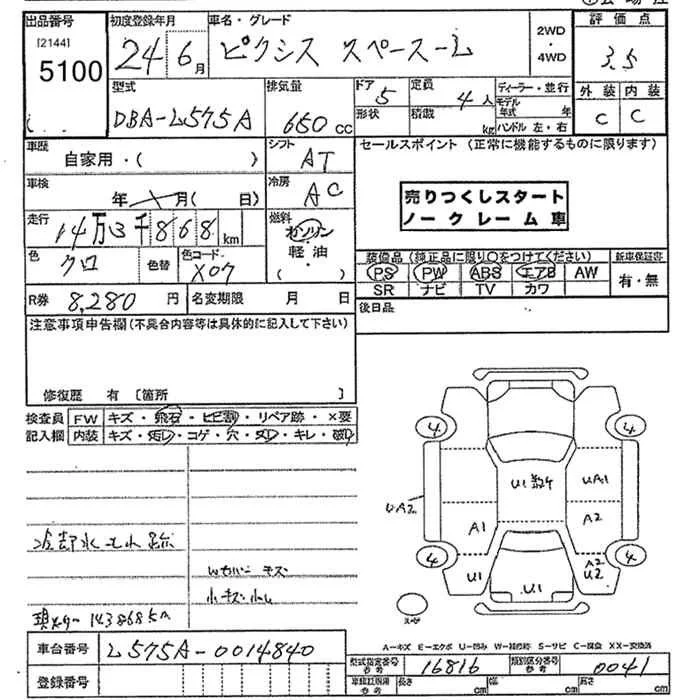 出品番号
[2144]
5100
初度登録年月
24 6月
車名・グレード
ピクシス スペース-L
2WD
・
4WD
評価点
3.5
外装 内装
C C
型式
DBA-L575A
排気量
650 cc
ドア
5
形状
定員
4人
積載
kg
ディーラー・並行
モデル年式 年
ハンドル 左・右
車歴
自家用・( )
シフト
AT
セールスポイント (正常に機能するものに限ります)
車検
年 月( 日)
冷房
AC
売りつくしスタート
ノークレーム車
走行
14万3千868km
燃料
ガソリン
・
軽・油
( )
色
クロ
色替
色コード
X07
装備品 (純正品に限り○をつけてください)
PS PW ABS エアB AW
SR ナビ TV カワ
新車保証書
有・無
R券
8,280円
名変期限 月 日
後日品
注意事項申告欄 (不具合内容等は具体的に記入して下さい)
修復歴 有 [箇所 ]
検査員
記入欄
FW キズ・飛石・ヒビ割・リペア跡・×要
内装 キズ・汚レ・コゲ・穴・スレ・キレ・破レ
冷却水モレ跡
Wカバー キズ
小キズ小凹
現メーター 143868km
4 4
U1 数ケ
UA1
UA2
A1
A2
4 4
U1
A2
U2
U1
スペア
A-キズ E-エクボ U-凹み W-補修跡 S-サビ C-腐食 XX-交換済
車台番号
L575A-0014840
登録番号
型式指定番号
参考
16816
類別区分番号
参考
0041
車検証記載
参考
長さ cm
幅 cm
高さ cm